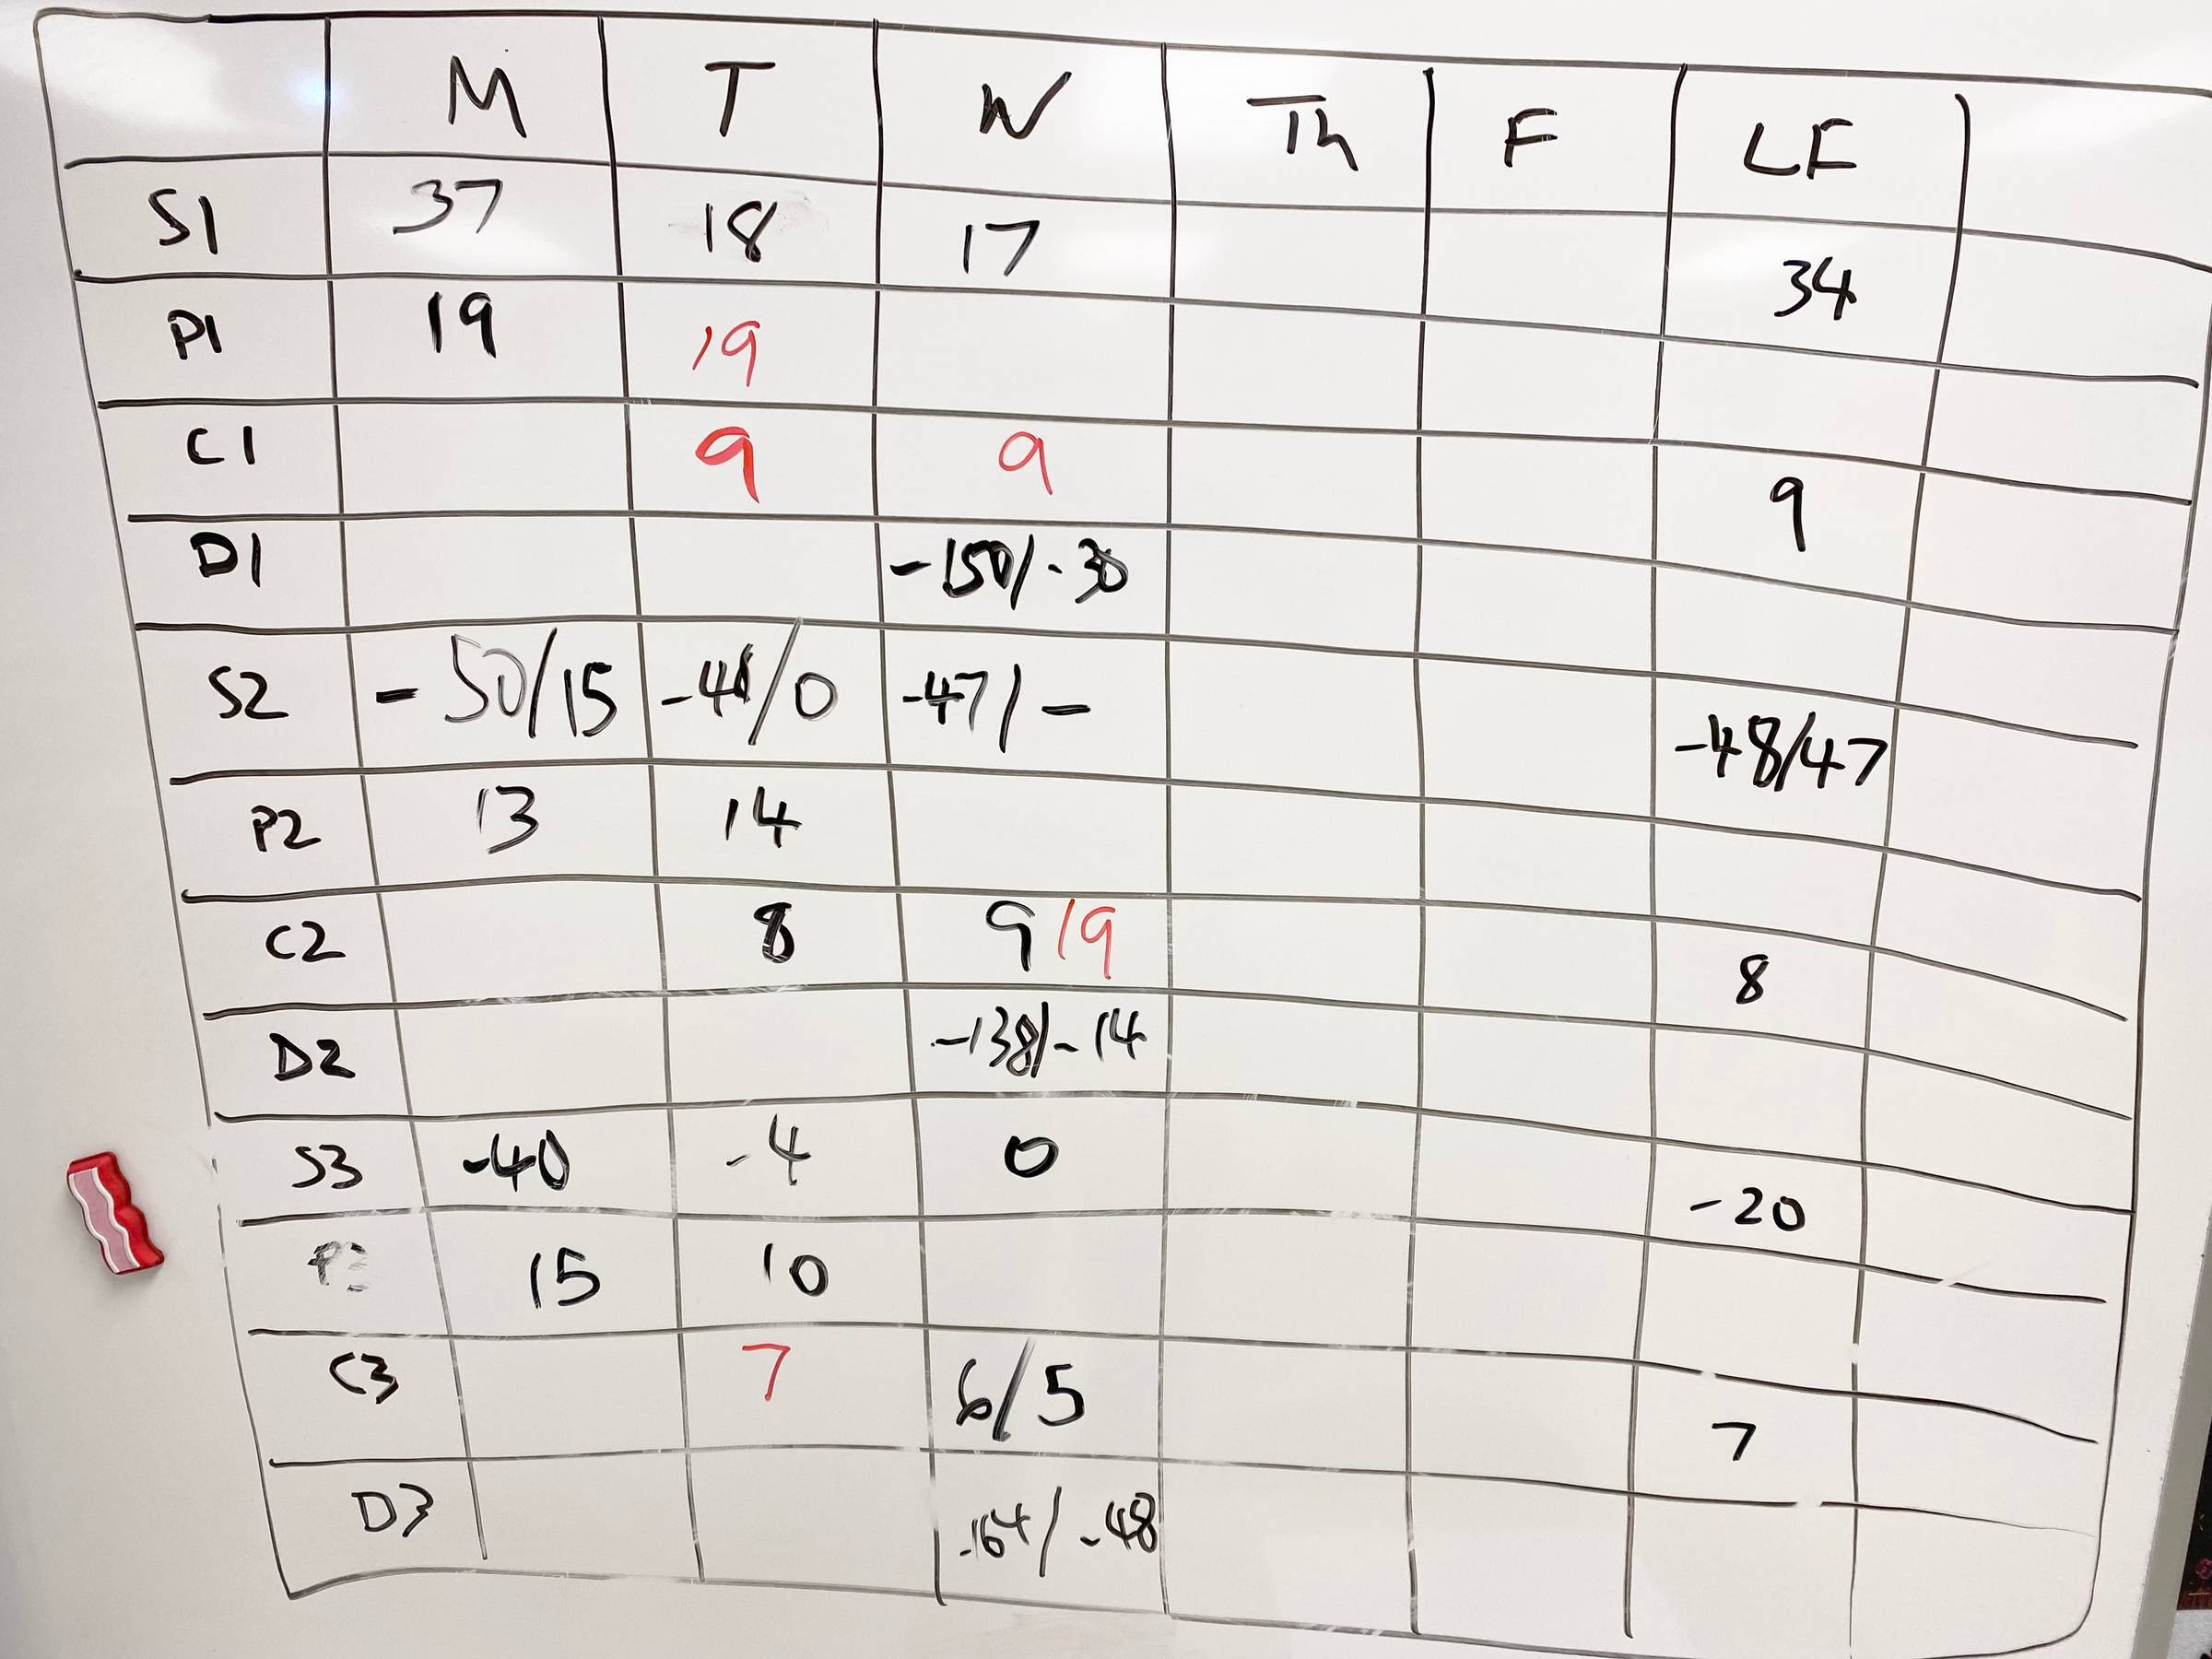 M T W Th F LF
S1 37 18 17 34
P1 19 19
C1 9 9 9
D1 -150/-30
S2 -50/15 /0 -47/- -48/47
P2 13 14
C2 8 9/9 8
D2 -138/-14
S3 -40 -4 0 -20
15 10
C3 7 6/5 7
D3 -164/-48